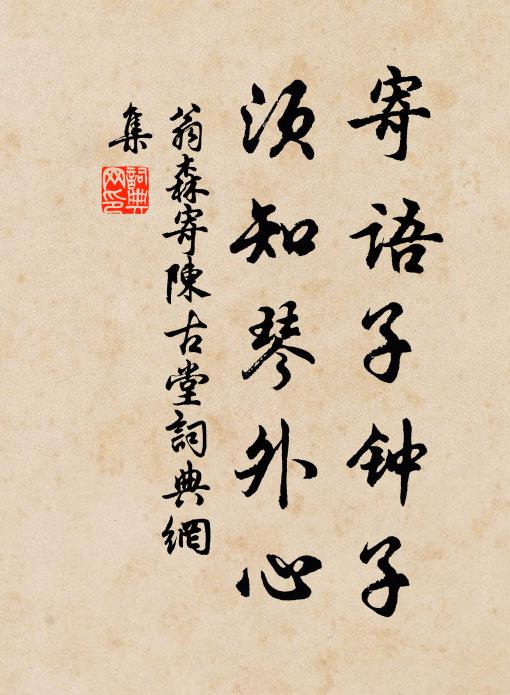 寄语子钟子
须知琴外心
翁森寄陳古堂詞典網
集
詞典網印